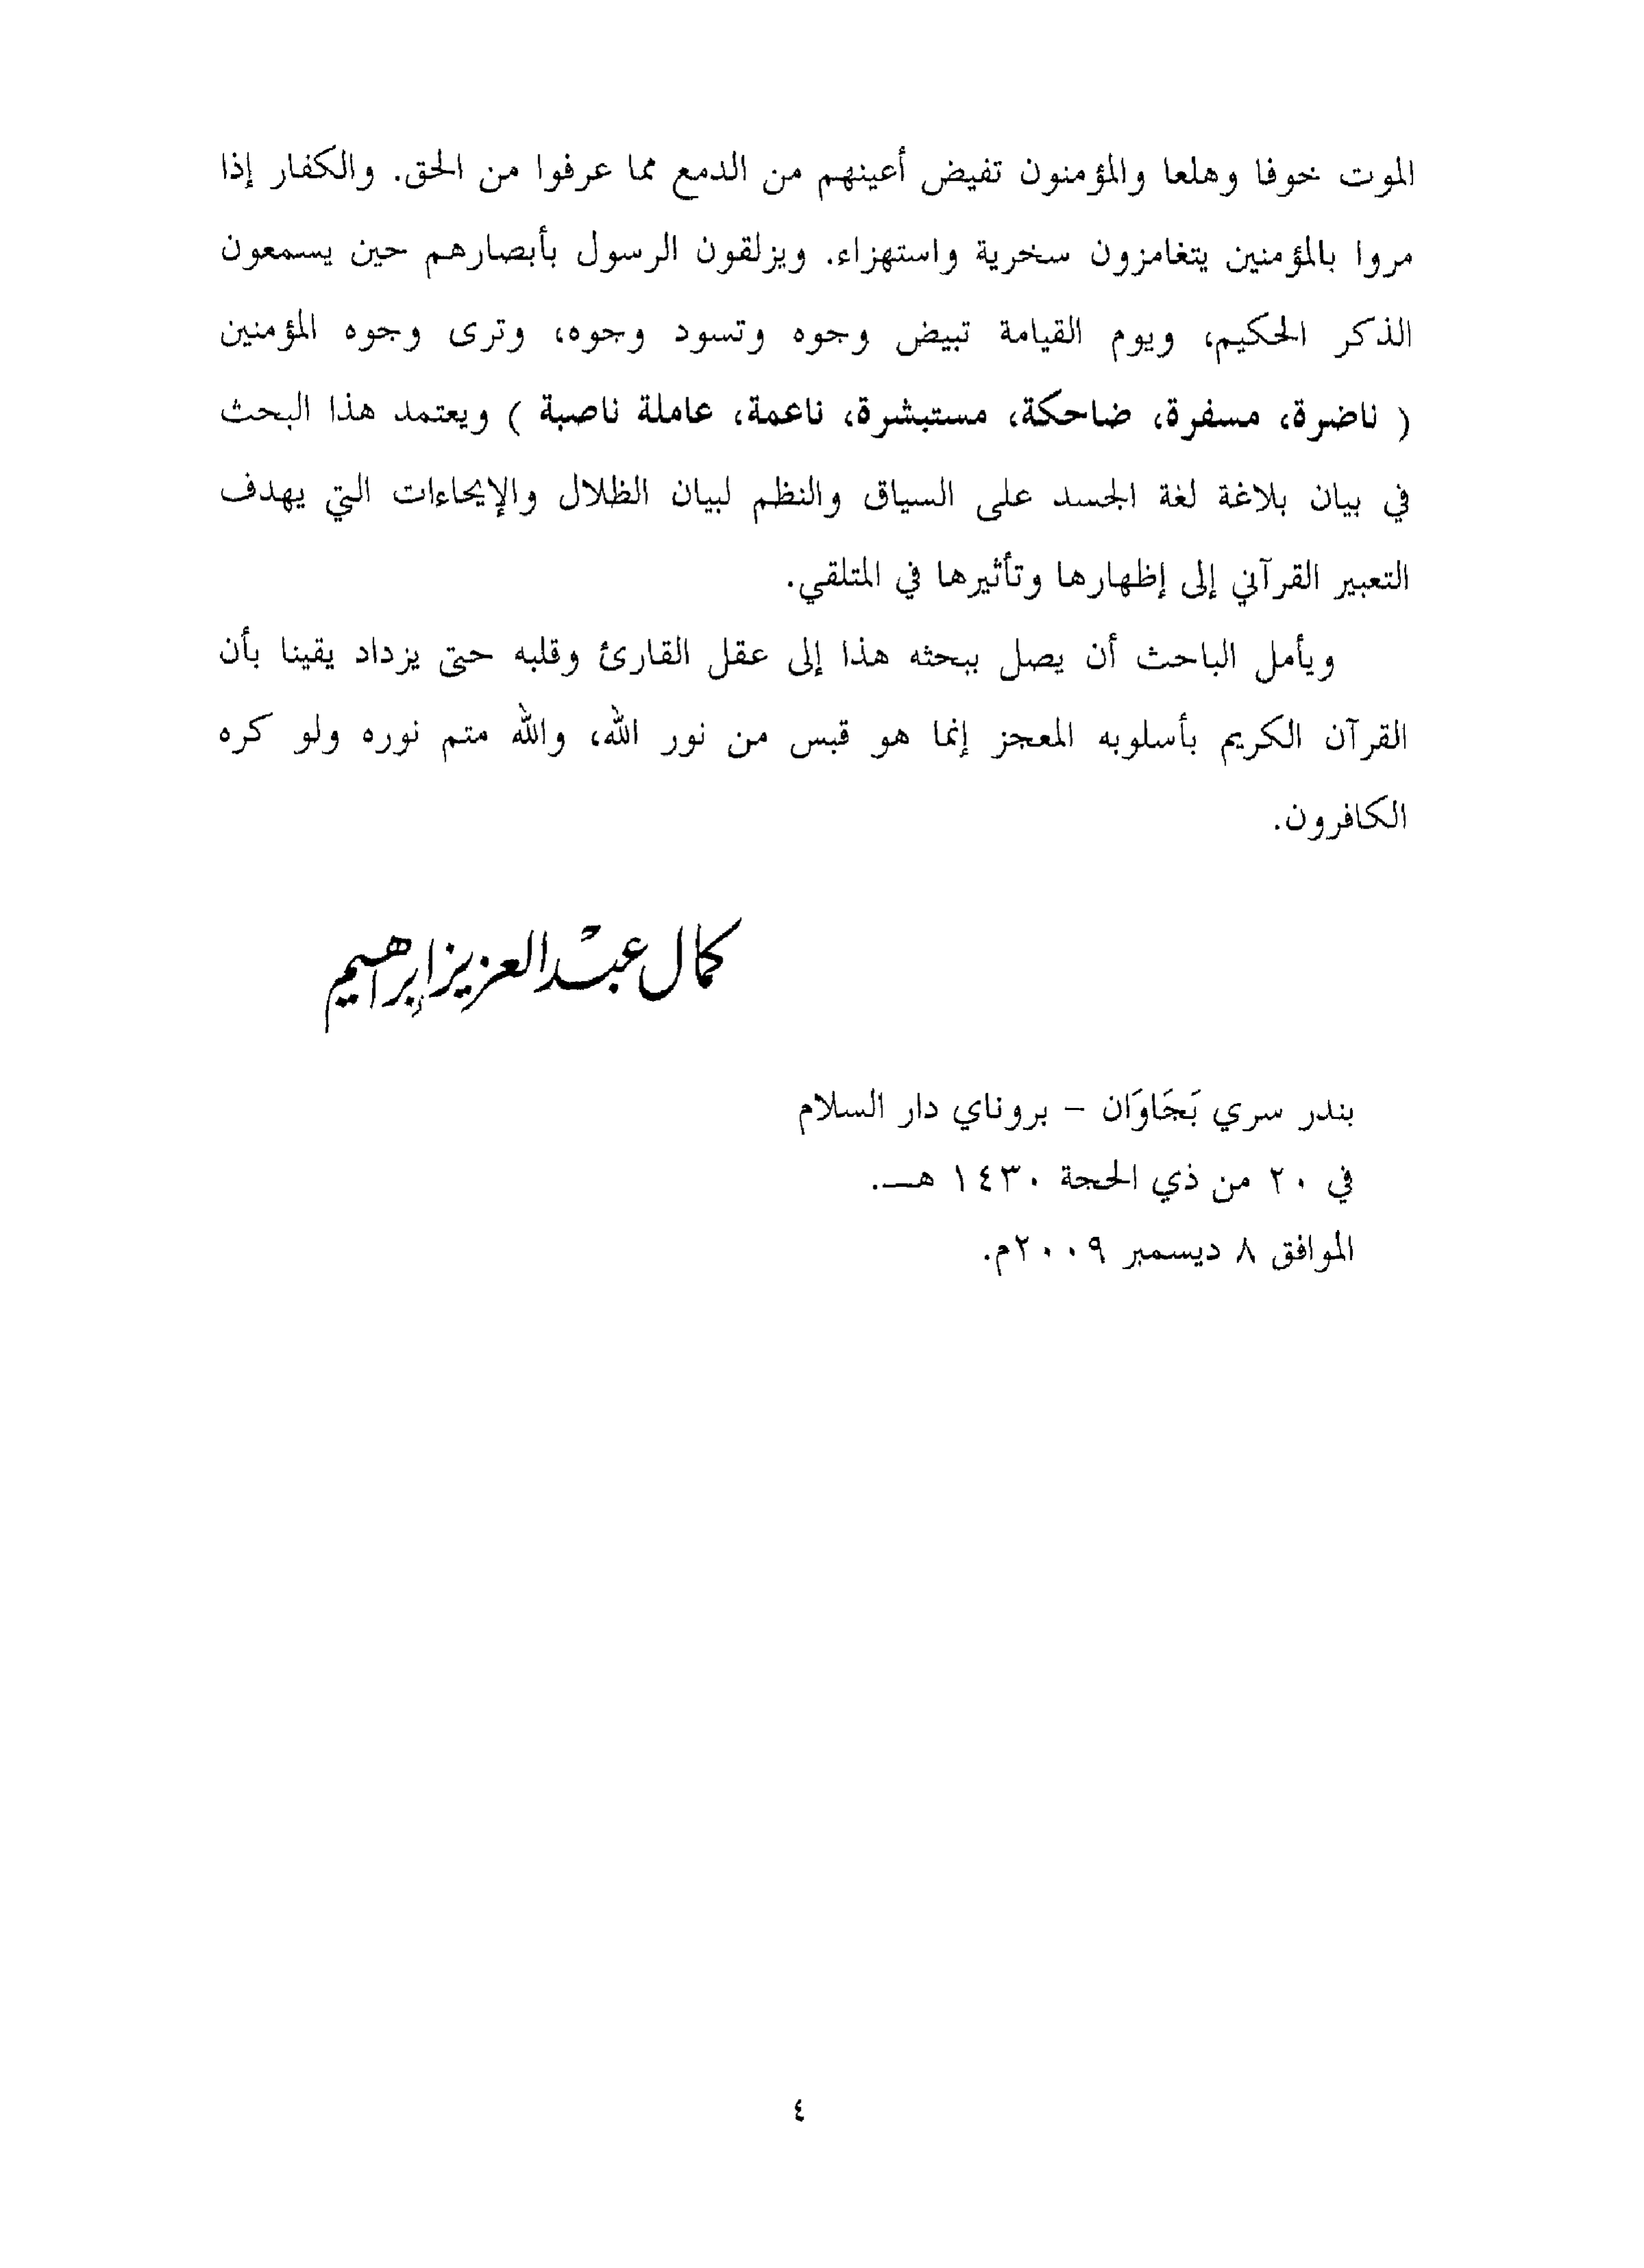 الموت خوفا وهلعا والمؤمنون تفيض أعينهم من الدمع مما عرفوا من الحق. والكفار إذا
مروا بالمؤمنين يتغامزون سخرية واستهزاء. ويزلقون الرسول بأبصارهم حين يسمعون
الذكر الحكيم، ويوم القيامة تبيض وجوه وتسود وجوه، وترى وجوه المؤمنين
( ناضرة، مسفرة، ضاحكة، مستبشرة، ناعمة، عاملة ناصبة ) ويعتمد هذا البحث
في بيان بلاغة لغة الجسد على السياق والنظم لبيان الظلال والإيحاءات التي يهدف
التعبير القرآني إلى إظهارها وتأثيرها في المتلقي.
ويأمل الباحث أن يصل ببحثه هذا إلى عقل القارئ وقلبه حتى يزداد يقينا بأن
القرآن الكريم بأسلوبه المعجز إنما هو قبس من نور الله، والله متم نوره ولو كره
الكافرون.
كمال عبد العزيز إبراهيم
بندر سري بَجَاوَان – بروناي دار السلام
في ٢٠ من ذي الحجة ١٤٣٠ هـ.
الموافق ٨ ديسمبر ٢٠٠٩م.
٤